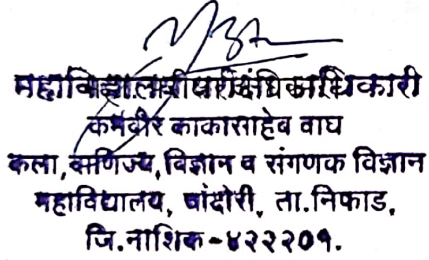 महाविद्यालयीन परीक्षा अधिकारी
कर्मवीर काकासाहेब वाघ
कला, वाणिज्य, विज्ञान व संगणक विज्ञान
महाविद्यालय, चांदोरी, ता.निफाड,
जि.नाशिक-४२२२०१.